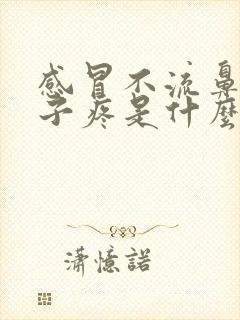 感冒不流鼻
子疼是什麼
瀟憶諾